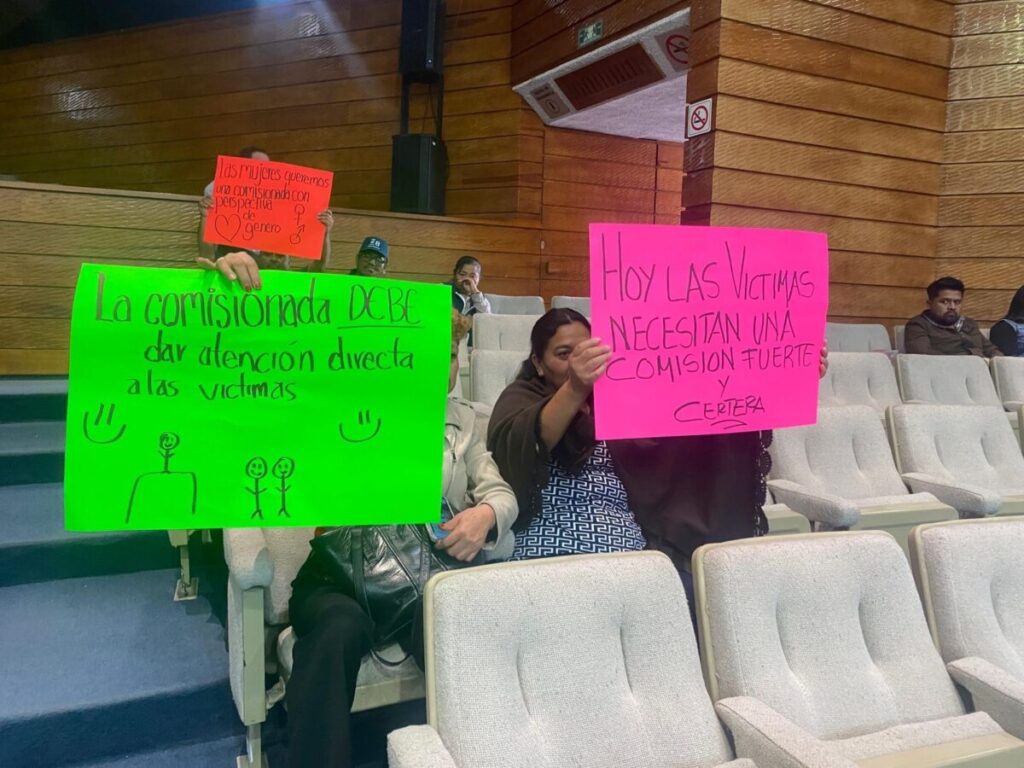 las mujeres queremos
una comisionada con
perspectiva
de
genero
La comisionada DEBE
dar atención directa
a las victimas
HOY LAS VICTIMAS
NECESITAN UNA
COMISIÓN FUERTE
Y
CERTERA